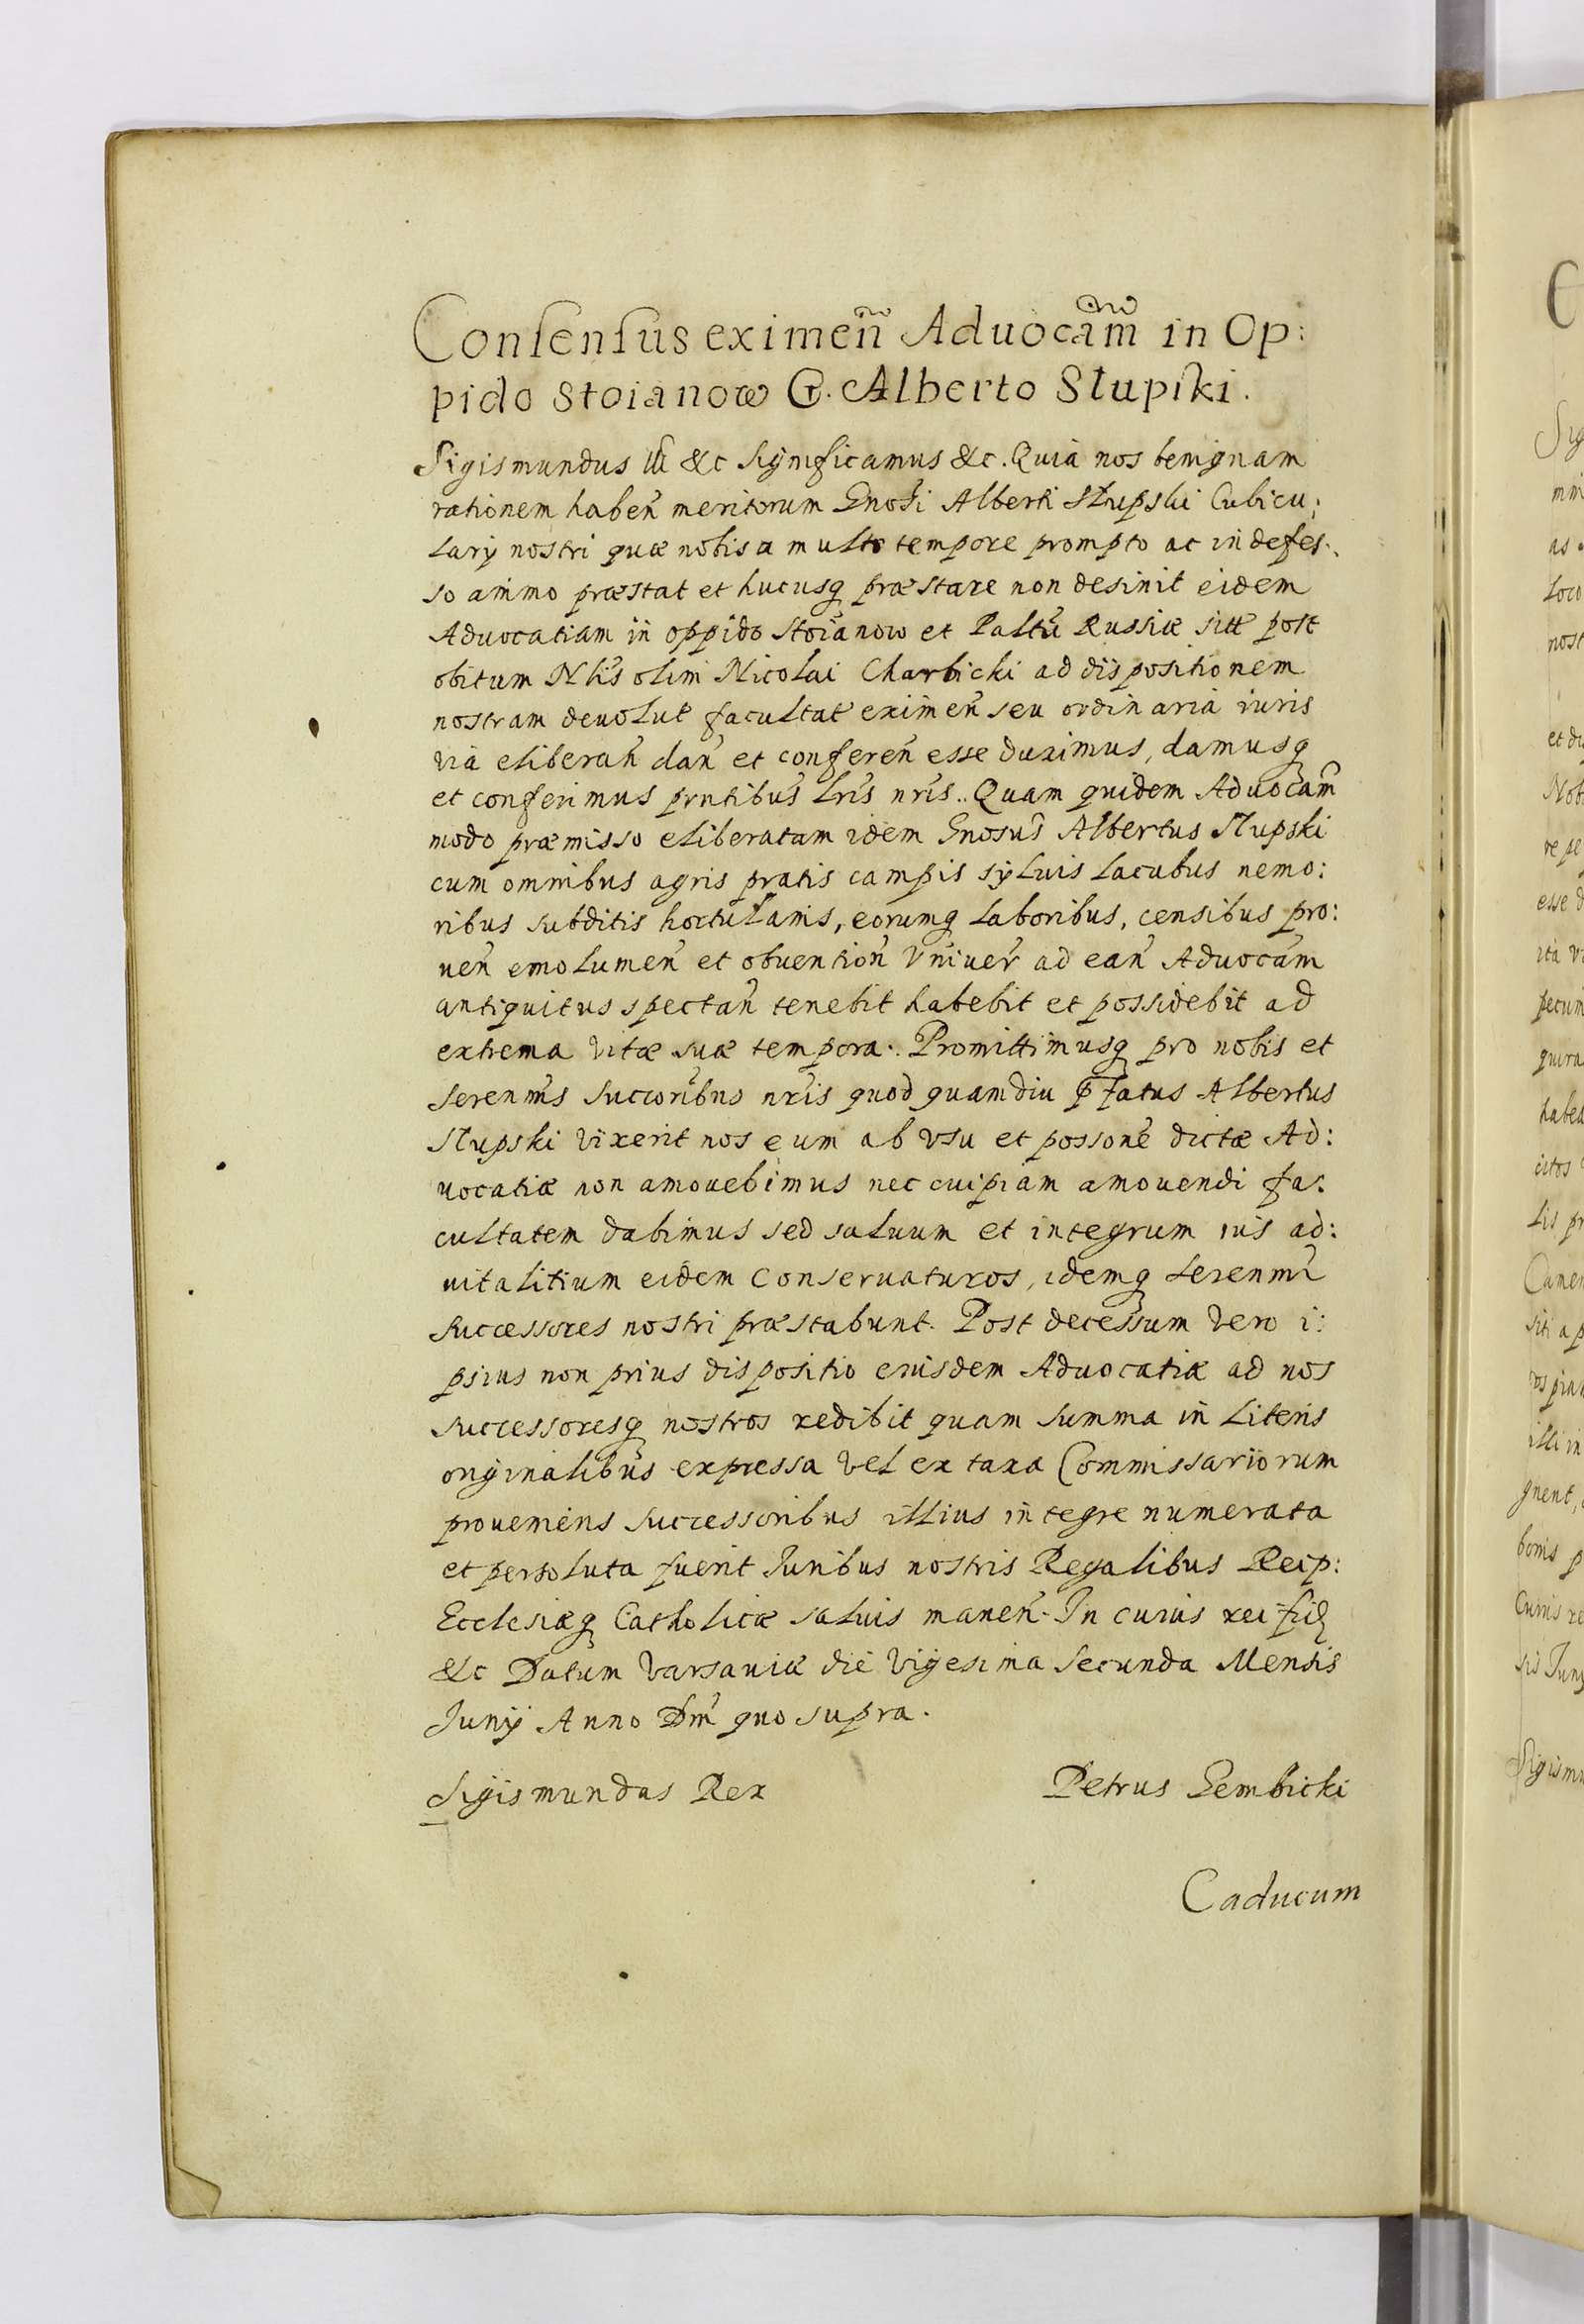 Consensus eximeñ Aduocãm in Op:
pido Stoianow G. Alberto Słupski.
Sigismundus III &c Significamus &c. Quia nos benignam
rationem habeñ meritorum Gnosi Alberti Słupski Cubicu:
larÿ nostri quæ nobis a multo tempore prompto ac indefes:
so animo præstat et hucusq præstare non desinit eidem
Aduocatiam in oppido Stoianow et Paltũ Russiæ sitt post
obitum Nlis olim Nicolai Charbicki ad dispositionem
nostram deuolut facultat eximeñ seu ordinaria iuris
via eliberañ dañ et confereñ esse duximus, damusq
et conferimus prntibus lris nris. Quam quidem Aduocãm
modo præmisso eliberatam idem Gnosus Albertus Słupski
cum omnibus agris pratis campis syluis lacubus nemo:
ribus subditis hortulanis, eorumq laboribus, censibus pro:
ueñ emolumeñ et obuentioñ Vniuer ad eañ Aduocãm
antiquitus spectañ tenebit habebit et possidebit ad
extrema vitæ suæ tempora. Promittimusq pro nobis et
serenmis succoribus nris quod quamdiu pfatus Albertus
Słupski vixerit nos eum ab vsu et possone dictæ Ad:
uocatiæ non amouebimus nec cuipiam amouendi fa:
cultatem dabimus sed saluum et integrum ius ad:
uitalitium eidem conseruaturos, idemq serenmi
successores nostri præstabunt. Post decessum vero i:
psius non prius dispositio eiusdem Aduocatiæ ad nos
successoresq nostros redibit quam summa in literis
originalibus expressa vel ex taxa Commissariorum
proueniens successoribus illius integre numerata
et persoluta fuerit Iuribus nostris Regalibus Reip:
Ecclesiæq Catholicæ saluis maneñ. In cuius rei fid
&c Datum Varsauiæ die Vigesima Secunda Mensis
Iunÿ Anno Dni quo supra.
Sigismundus Rex
Petrus Gembicki
Caducum